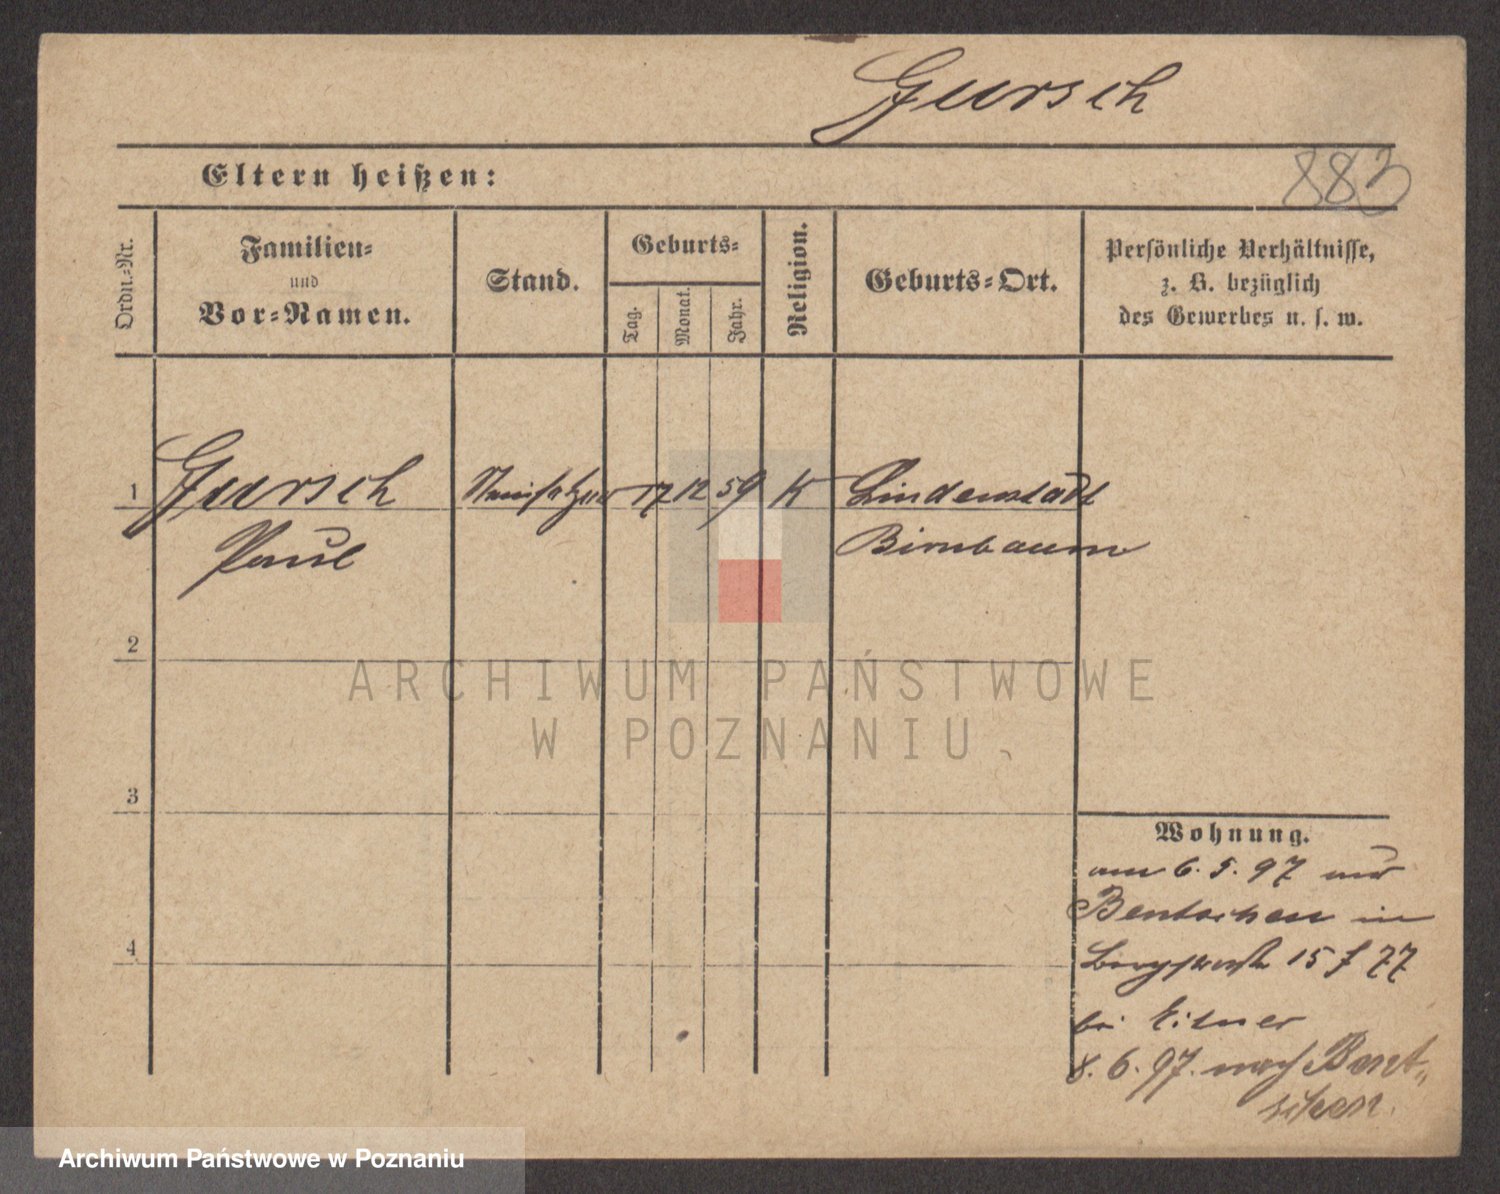 Gursch
883
Eltern heißen:
Ordn.-Nr.
Familien-
und
Vor-Namen.
Stand.
Geburts-
Tag.
Monat.
Jahr.
Religion.
Geburts-Ort.
Persönliche Verhältnisse,
z. B. bezüglich
des Gewerbes u. s. w.
1 Gursch 17 12 59 K Lindenstadt
Paul Birnbaum
2
ARCHIWUM PAŃSTWOWE
W POZNANIU
3
Wohnung.
am 6. 5. 97 aus
Bentschen in
15 f 77
4
bei Eitner
8. 6. 97. nach Bent„
schen.
Archiwum Państwowe w Poznaniu